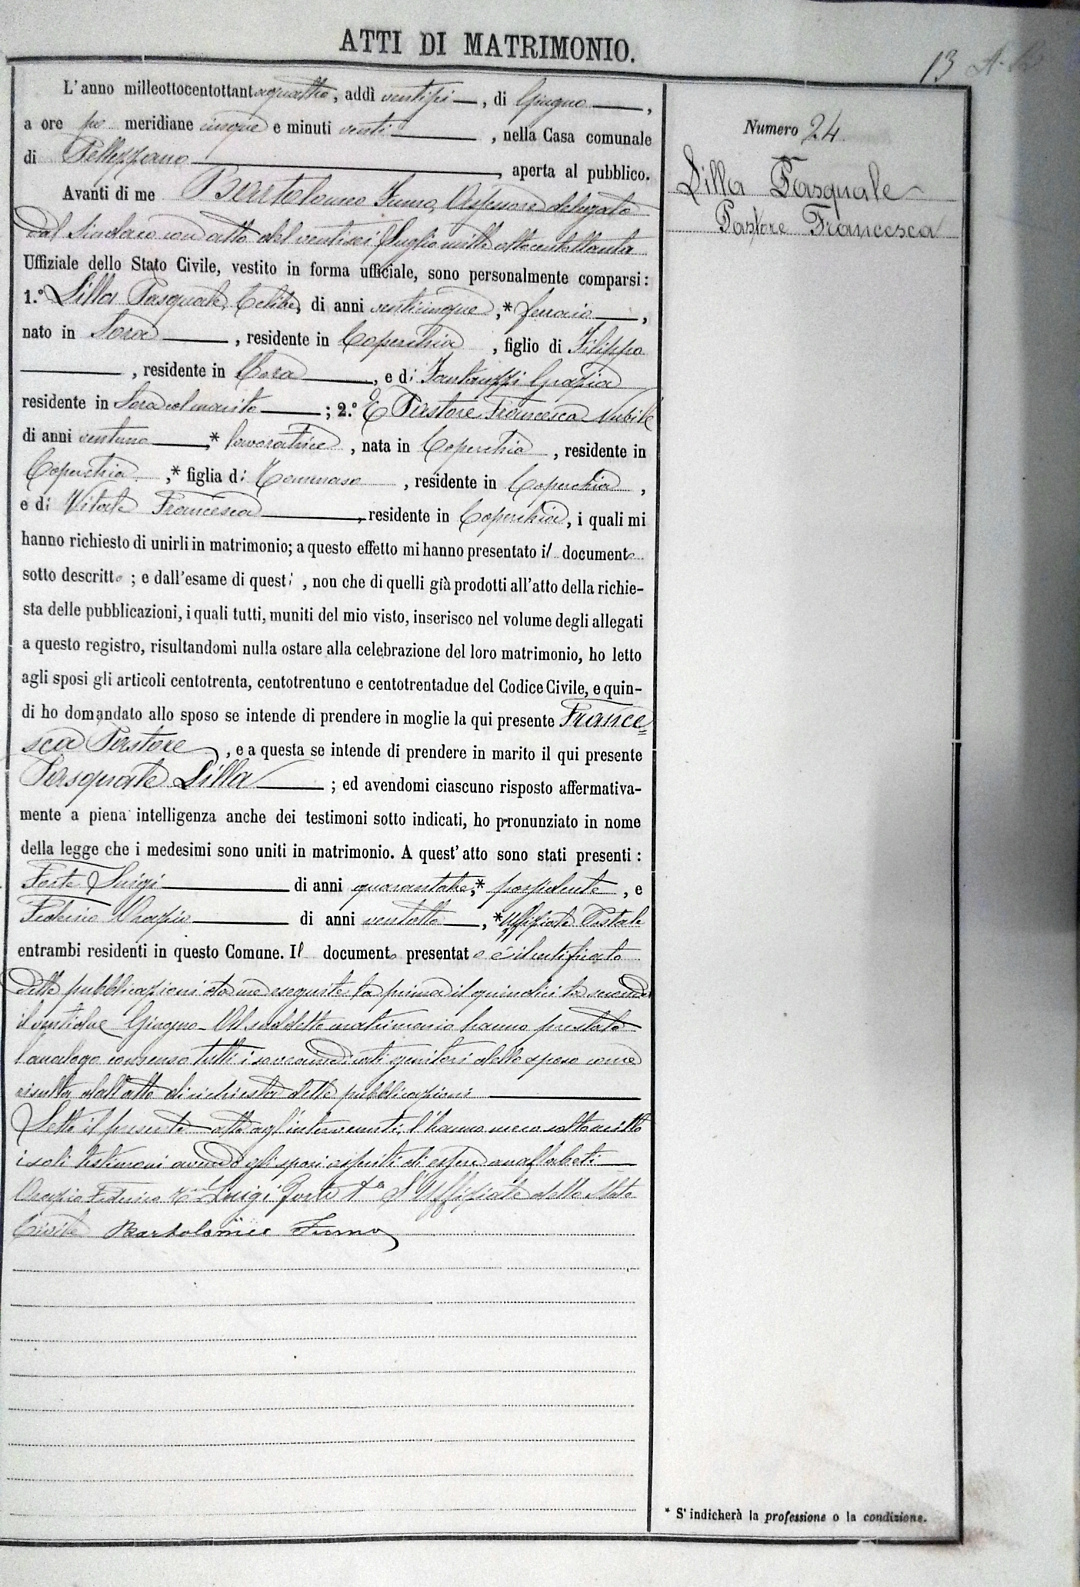 ATTI DI MATRIMONIO.
13
Numero 24
Lilla Pasquale
Pastore Francesca
L'anno milleottocentottantaquattro, addì ventisei, di Giugno,
a ore po meridiane cinque e minuti venti, nella Casa comunale
di Pellezzano, aperta al pubblico.
Avanti di me Bartolomeo Fumo, Assessore delegato
dal Sindaco con atto del ventisei Luglio mille ottocentottanta
Uffiziale dello Stato Civile, vestito in forma ufficiale, sono personalmente comparsi:
1.° Lilla Pasquale, Celibe, di anni venticinque,* ferraio,
nato in Sora, residente in Coperchia, figlio di Filippo
, residente in Sora, e di Santuzzi Grazia
residente in Sora col marito; 2.° E Pastore Francesca Nubile
di anni ventuno,* lavoratrice, nata in Coperchia, residente in
Coperchia,* figlia di Tommaso, residente in Coperchia,
e di Vitale Francesca, residente in Coperchia, i quali mi
hanno richiesto di unirli in matrimonio; a questo effetto mi hanno presentato il documento
sotto descritto; e dall'esame di questi, non che di quelli già prodotti all'atto della richie-
sta delle pubblicazioni, i quali tutti, muniti del mio visto, inserisco nel volume degli allegati
a questo registro, risultandomi nulla ostare alla celebrazione del loro matrimonio, ho letto
agli sposi gli articoli centotrenta, centotrentuno e centotrentadue del Codice Civile, e quin-
di ho domandato allo sposo se intende di prendere in moglie la qui presente France=
sca Pastore, e a questa se intende di prendere in marito il qui presente
Pasquale Lilla; ed avendomi ciascuno risposto affermativa-
mente a piena intelligenza anche dei testimoni sotto indicati, ho pronunziato in nome
della legge che i medesimi sono uniti in matrimonio. A quest'atto sono stati presenti:
Forte Luigi di anni quarantatre,* possidente, e
Federico Orazio di anni ventotto,* Uffiziale Postale
entrambi residenti in questo Comune. Il documento presentato è il certificato
delle pubblicazioni da me eseguite la prima il quindici la seconda
il ventidue Giugno_ Al suddetto matrimonio hanno prestato
l'analogo consenso tutti i sovraindicati genitori dello sposo come
risulta dall'atto di richiesta delle pubblicazioni
Letto il presente atto agl'intervenuti, l'hanno meco sottoscritto
i soli testimoni avendo gli sposi asseriti di essere analfabeti
Orazio Federico Luigi Forte L'Uffiziale dello Stato
Civile Bartolomeo Fumo
* S'indicherà la professione o la condizione.